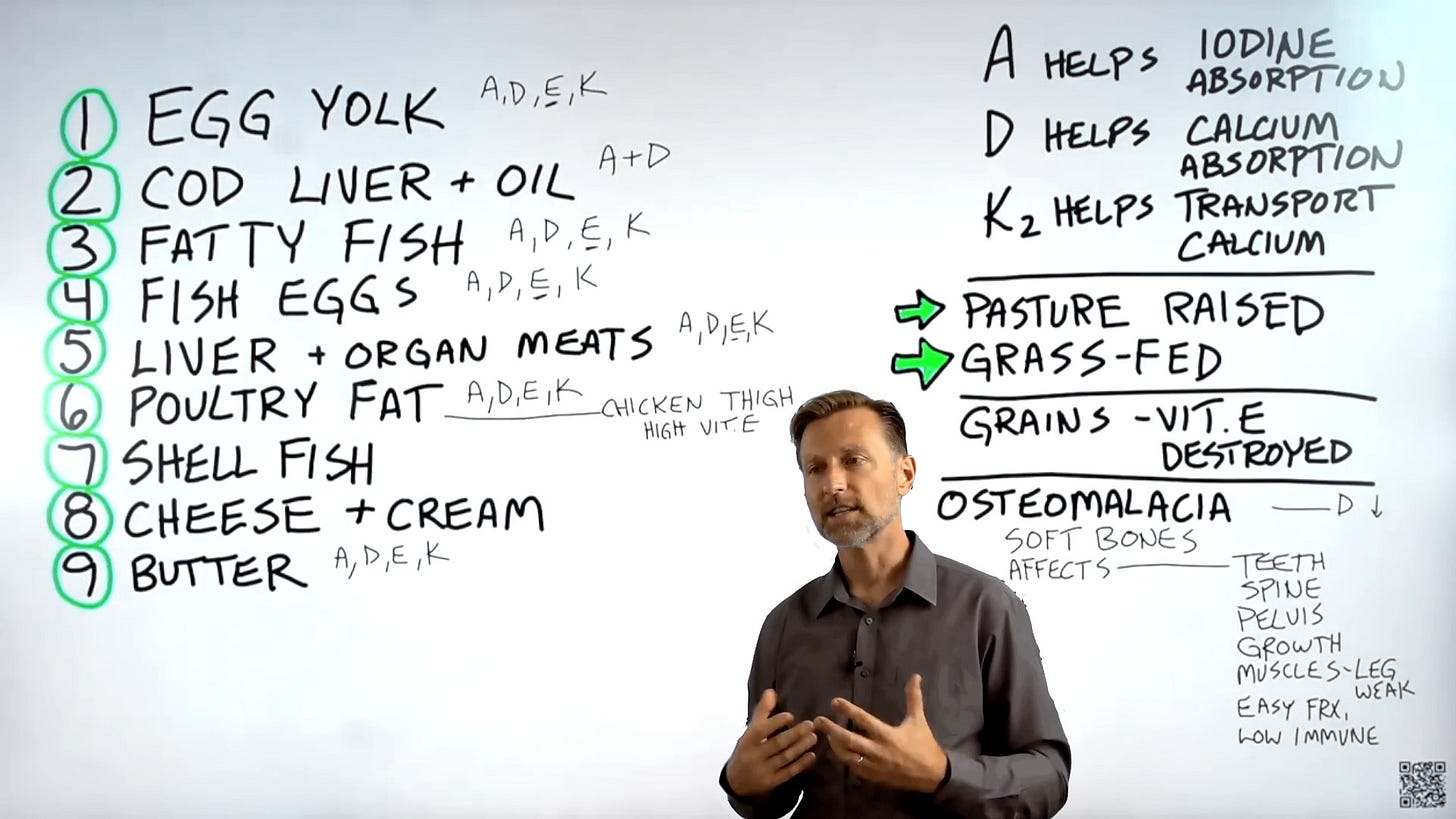 1 EGG YOLK A, D, E, K
2 COD LIVER + OIL A+D
3 FATTY FISH A, D, E, K
4 FISH EGGS A, D, E, K
5 LIVER + ORGAN MEATS A, D, E, K
6 POULTRY FAT A, D, E, K CHICKEN THIGH
HIGH VIT. E
7 SHELL FISH
8 CHEESE + CREAM
9 BUTTER A, D, E, K
A HELPS IODINE
ABSORPTION
D HELPS CALCIUM
ABSORPTION
K2 HELPS TRANSPORT
CALCIUM
PASTURE RAISED
GRASS-FED
GRAINS - VIT. E
DESTROYED
OSTEOMALACIA — D ↓
SOFT BONES
AFFECTS — TEETH
SPINE
PELVIS
GROWTH
MUSCLES - LEG
WEAK
EASY FRX,
LOW IMMUNE